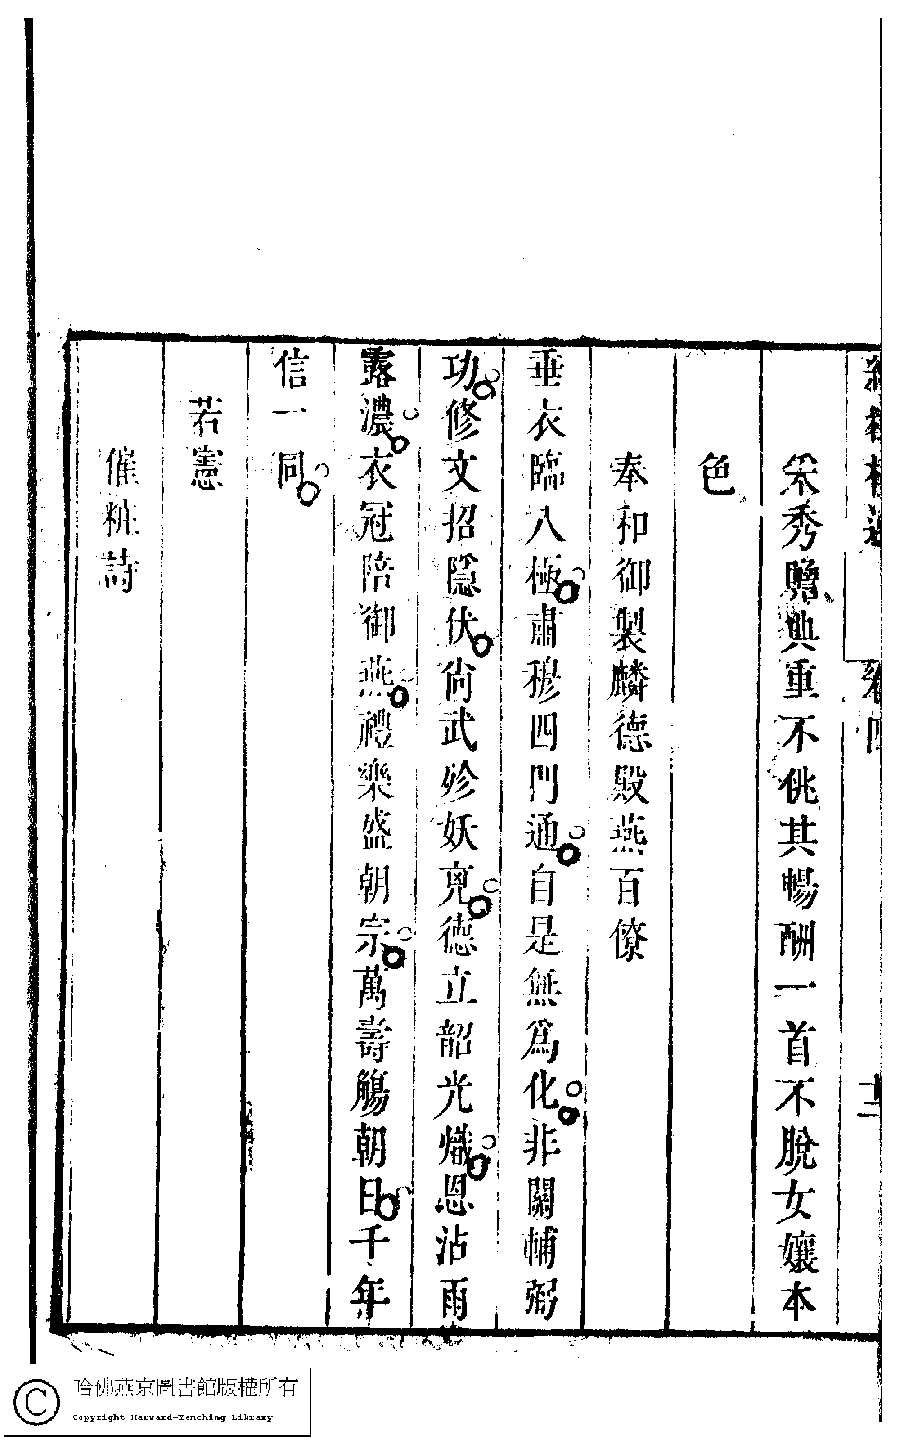 卷四
十二
宋秀贍典重不佻其暢酬一首不脫女孃本
色
奉和御製麟德殿燕百僚
垂衣臨八極肅穆四門通自是無爲化非關輔弼
功修文招隱伏尚武殄妖兇德立韶光熾恩沾雨
露濃衣冠陪御燕禮樂盛朝宗萬壽觴朝日千年
信一同
若憲
催粧詩
哈佛燕京圖書館版權所有
Copyright Harvard-Yenching Library